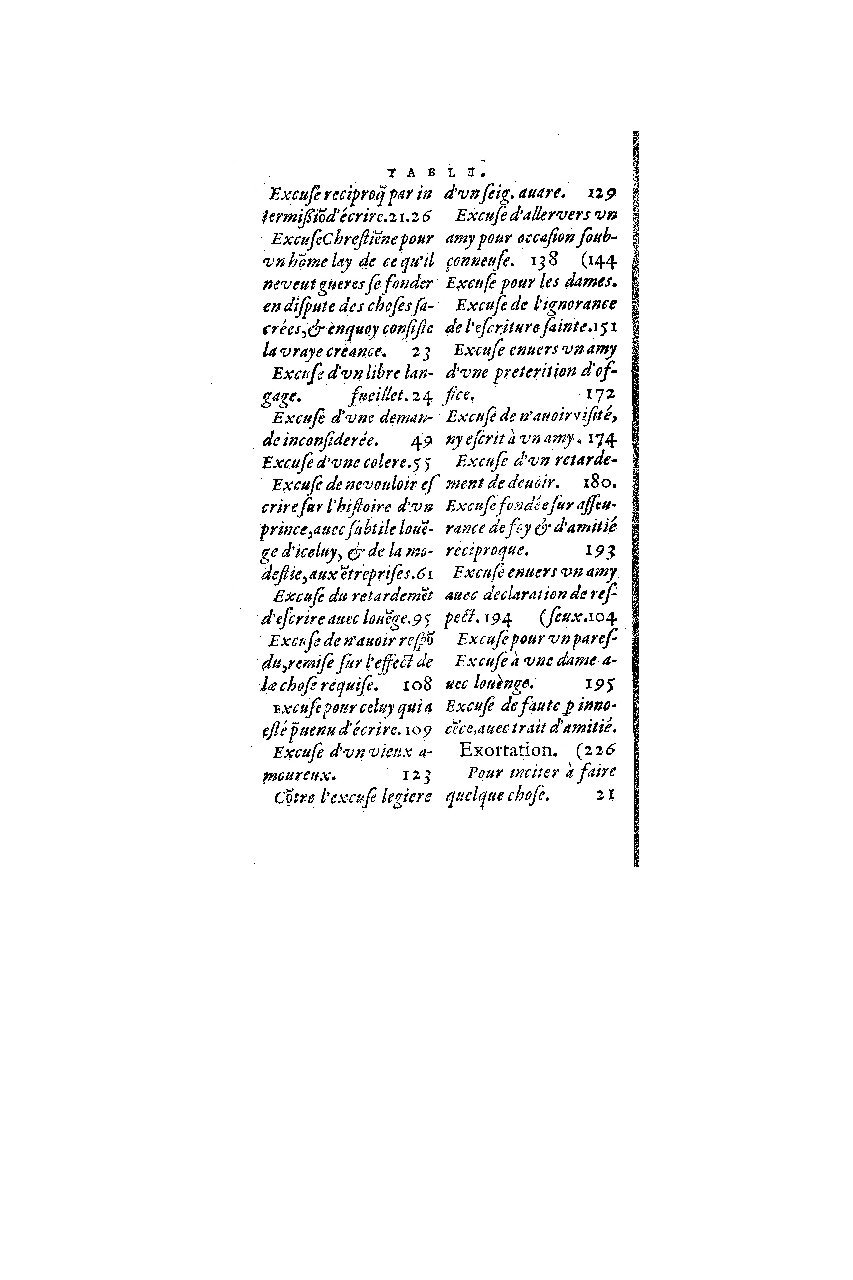 TABLE.
Excuſe reciproq̃ par in
termiſſiõ d'écrire. 21.26
Excuſe Chreſtiẽne pour
vn hõme lay de ce qu'il
ne veut gueres ſe fonder
en diſpute des choſes ſa-
crées, & en quoy conſiſte
la vraye creance. 23
Excuſe d'vn libre lan-
gage. fueillet. 24
Excuſe d'vne deman-
de inconſiderée. 49
Excuſe d'vne colere. 55
Excuſe de ne vouloir eſ
crire ſur l'hiſtoire d'vn
prince, auec ſubtile louẽ-
ge d'iceluy, & de la mo-
deſtie, aux ẽtrepriſes. 61
Excuſe du retardemẽt
d'eſcrire auec louẽge. 95
Excuſe de n'auoir reſpõ
du, remiſe ſur l'effect de
la choſe requiſe. 108
Excuſe pour celuy qui a
eſté p̃uenu d'écrire. 109
Excuſe d'vn vieux a-
moureux. 123
Cõtre l'excuſe legiere
d'vn ſeig. auare. 129
Excuſe d'aller vers vn
amy pour occaſion ſoub-
çonneuſe. 138 (144
Excuſe pour les dames.
Excuſe de l'ignorance
de l'eſcriture ſainte. 151
Excuſe enuers vn amy
d'vne preterition d'of-
fice. 172
Excuſe de n'auoir viſité,
ny eſcrit à vn amy. 174
Excuſe d'vn retarde-
ment de deuoir. 180.
Excuſe fondée ſur aſſeu-
rance de foy & d'amitié
reciproque. 193
Excuſe enuers vn amy
auec declaration de reſ-
pect. 194 (ſeux. 104
Excuſe pour vn pareſ-
Excuſe à vne dame a-
uec louẽnge. 195
Excuſe de faute p inno-
cẽce, auec trait d'amitié.
Exortation. (226
Pour inciter à faire
quelque choſe. 21